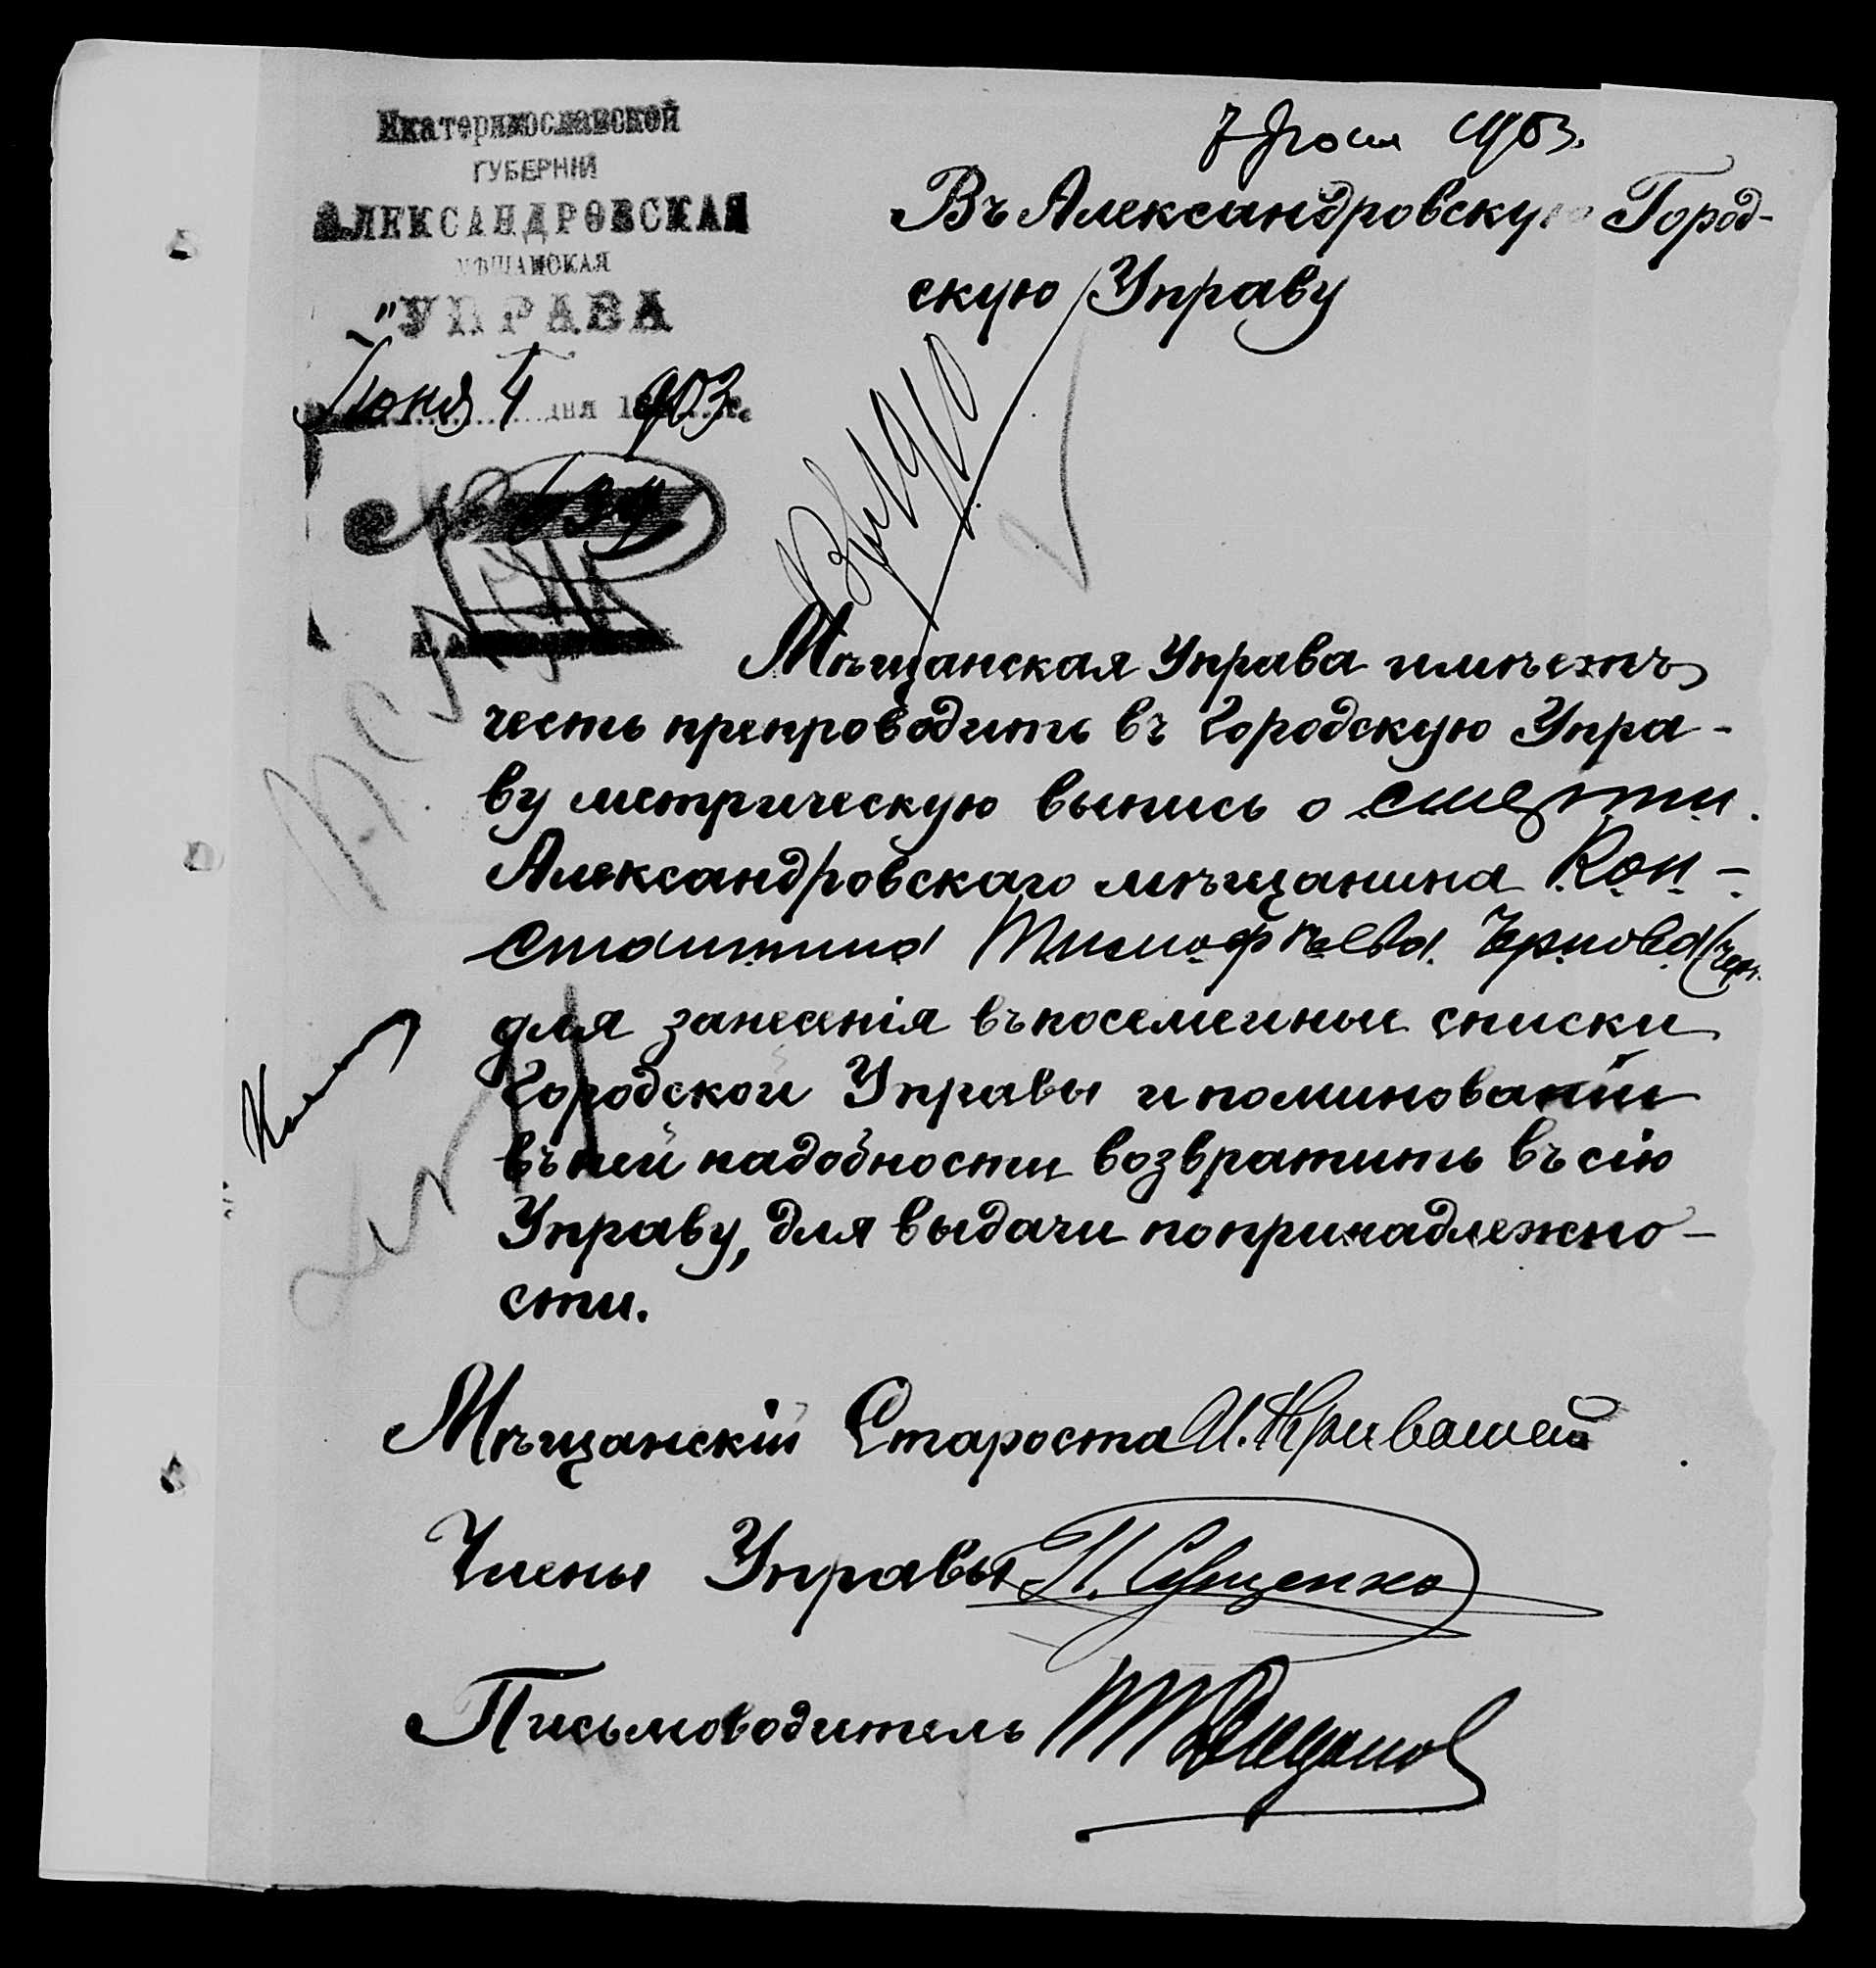 Екатеринославской
ГУБЕРНІИ
АЛЕКСАНДРОВСКАЯ
МѢЩАНСКАЯ
УПРАВА
Іюня 4 дня 1903
7 Іюня 1903.
Въ Александровскую Город-
скую Управу
Мѣщанская Управа имѣетъ
честь препроводить въ Городскую Упра-
ву метрическую выпись о смерти
Александровскаго мѣщанина Кон-
стантина Тимофѣева Чернова
для занесенія въ посемейные списки
Городской Управы и по миновании
въ ней надобности возвратить въ сію
Управу, для выдачи по принадлежно-
сти.
Мѣщанскій Староста
Члены Управы
Письмоводитель